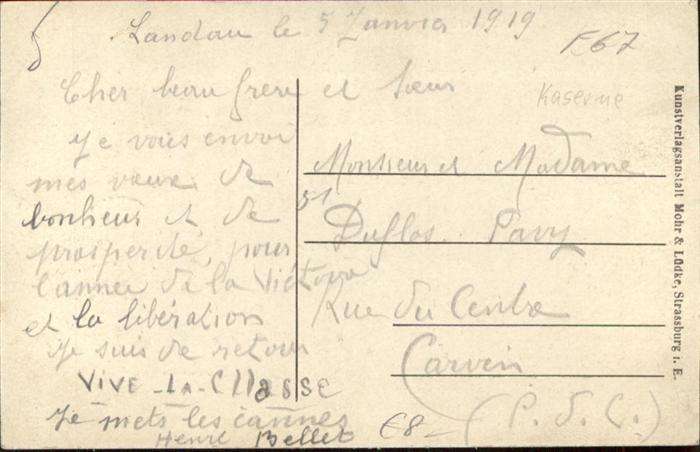 Landau le 5 Janvier 1919
F67
Kaserne
Cher beau frere et Soeur
Je vous envoi
mes voeux de
bonheur et de
prosperité, pour
l'année de la Victoire
et la libération
Je suis de retour
VIVE-LA-CLLASSE
Je mets les cannes
Henri Bellet
Monsieur et Madame
51
Duflos Pavy
Rue du Centre
Carvin
(P. d. C.)
€8-
Kunstverlagsanstalt Mohr & Lüdke, Strassburg i. E.